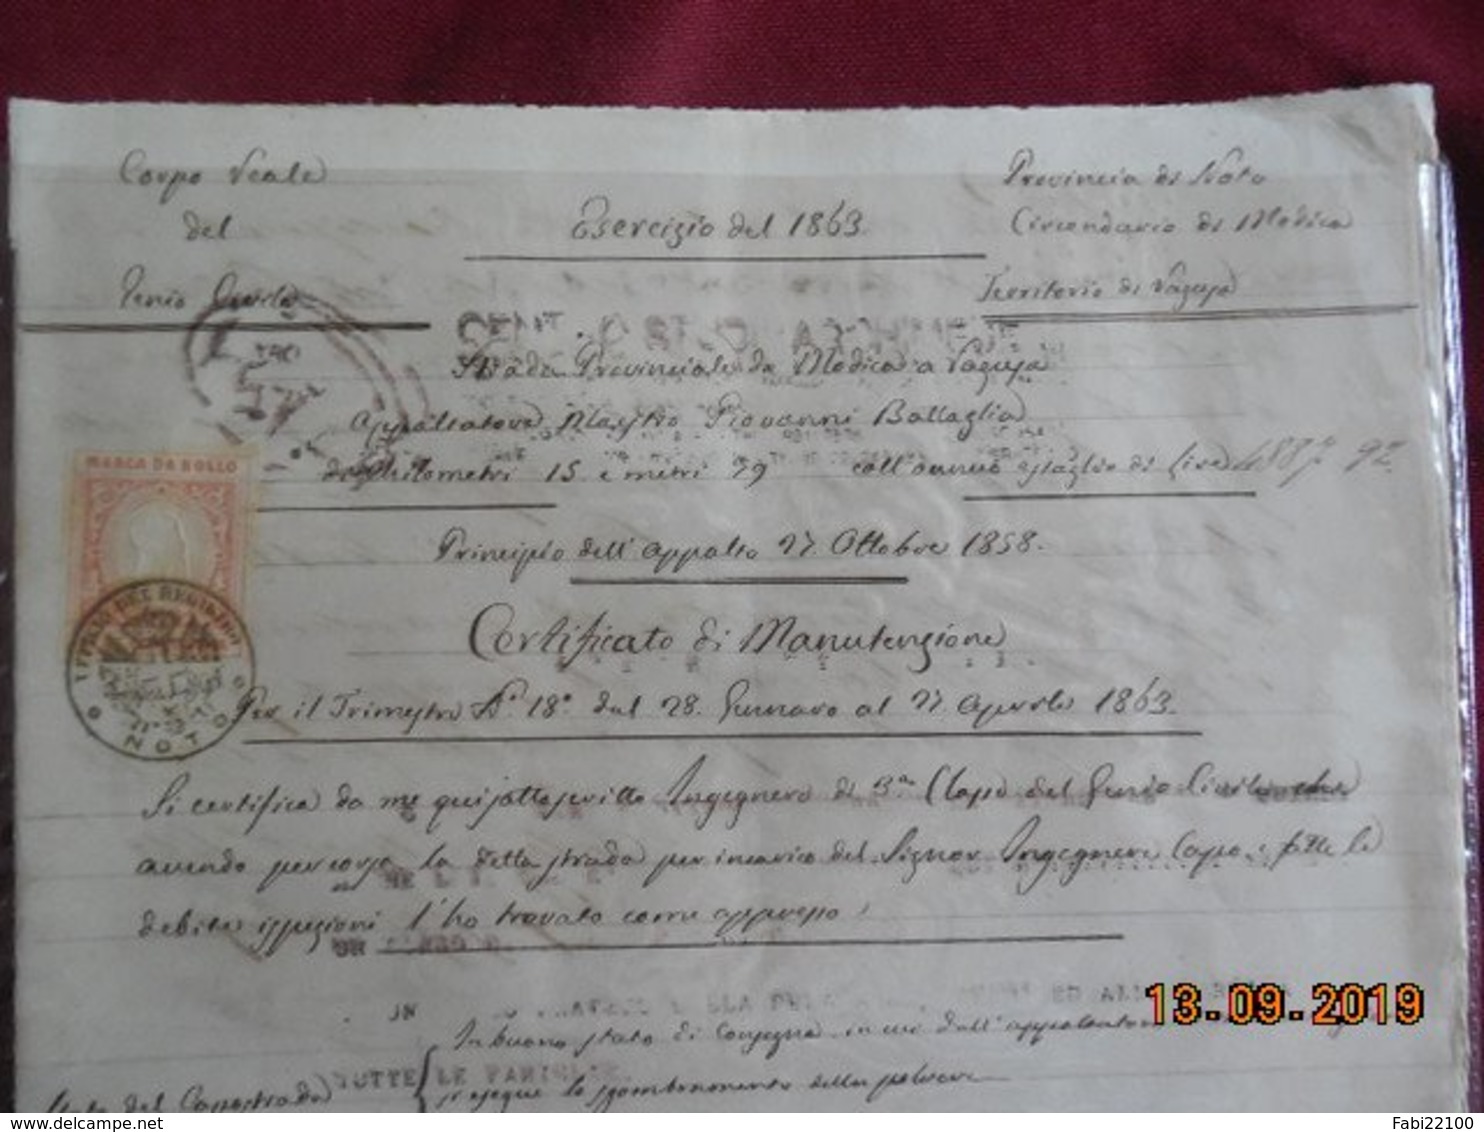 Corpo Reale
del
Genio Civile
Esercizio del 1863.
Provincia di Noto
Circondario di Modica
Territorio di Ragusa
Strada Provinciale da Modica a Ragusa
Appaltatore Mastro Giovanni Battaglia
di Chilometri 15 e metri 79 coll'annuo estaglio di Lire 4887. 92
Principio dell'appalto 27 Ottobre 1858.
Certificato di Manutenzione
Per il Trimestre N.° 18° dal 28. Gennaro al 27 Aprile 1863.
MARCA DA BOLLO
NOTO
Si certifica da me quisottoscritto Ingegnere di 3a. Classe del Genio Civile che
avendo percorsa la detta strada per incarico del Signor Ingegnere Capo, e fatte le
debite ispezioni l'ho trovata come appresso,
In buono stato di consegna, in cui dall'appaltatore
si esegue lo sgombramento della polvere
Stato del Capostrada
13.09.2019
delcampe.net
Fabi22100